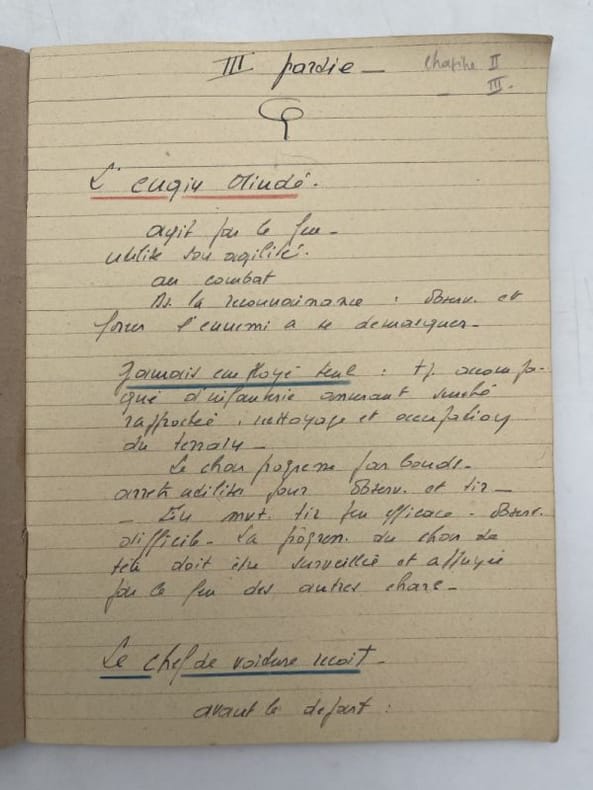 III partie _
Chapitre II
_ III.
L'engin blindé.
agit par le feu _
utilise son agilité.
au combat
Ds. la reconnaissance : observ. et
forcer l'ennemi a se demasquer _
Jamais employé seul : tj. accompa-
gné d'infanterie assurant sureté
rapprochée, nettoyage et occupation
du terrain _
Le char progresse par bonds _
arrets utilisés pour observ. et tir _
_ En mvt. tir peu efficace - observ.
difficile - La progres. du char de
tete doit être surveillée et appuyée
par le feu des autres chars _
Le chef de voiture recoit _
avant le depart :